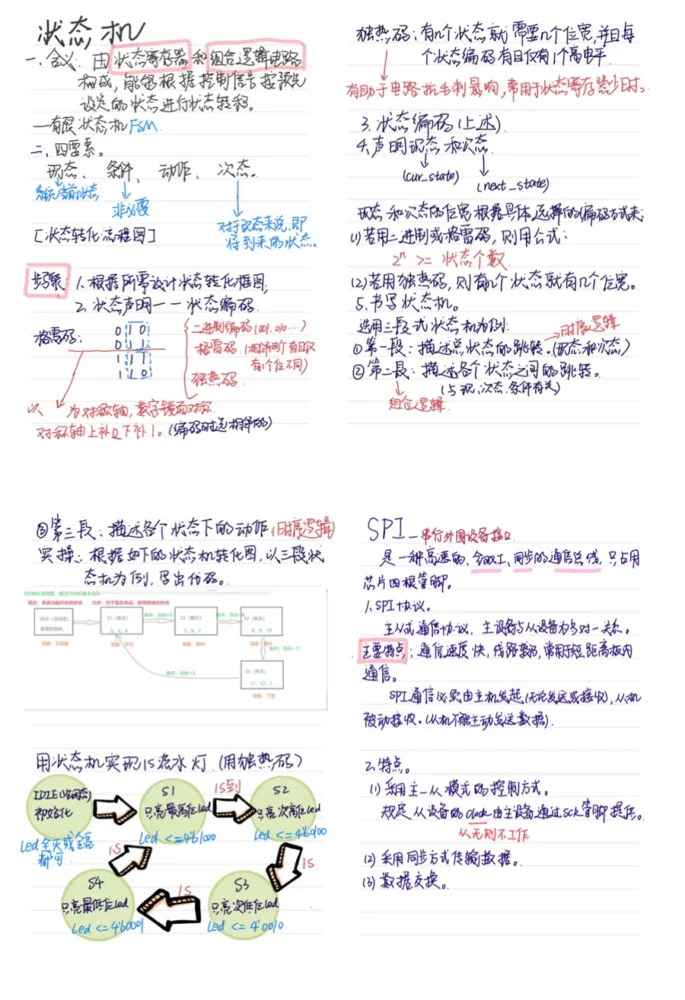 状态机
一、含义：由状态寄存器和组合逻辑电路
构成，能够根据控制信号按预先
设定的状态进行状态转移。
—有限状态机FSM
二、四要素。
现态、条件、动作、次态。
非必要
对于现态来说，即
得到来的状态。
[状态转化流程图]
步骤：1.根据所需设计状态转化框图.
2.状态声明——状态编码
格雷码：
0 0
0 1
1 1
1 0
二进制编码(001.010……)
格雷码(相邻两个有且仅
有1个位不同)
独热码
以 为对称轴，数字镜面对称
对称轴上补0下补1。(编码时选相邻的)
独热码：有几个状态就需要几个位宽，并且每
个状态编码有且仅有1个高电平.
有助于电路抗毛刺影响，常用于状态寄存器少时。
3.状态编码(上述)
4.声明现态和次态.
(cur_state)
(next_state)
现态和次态的位宽根据具体选择的编码方式来:
(1)若用二进制或格雷码，则用公式：
2ⁿ >= 状态个数
(2)若用独热码，则有几个状态就有几个位宽。
5.书写状态机。
选用三段式状态机为例：
时序逻辑
①第一段：描述总状态的跳转.(现态和次态)
②第二段：描述各个状态之间的跳转。
(与现、次态.条件有关)
组合逻辑
③第三段：描述各个状态下的动作(时序逻辑)
实操：根据如下的状态机转化图，以三段状
态机为例，写出代码。
用状态机实现1S流水灯.(用独热码)
IDLE(空闲态)
初始化
Led全灭或全亮
都可
S1
只亮最高位Led
Led <=4'b1000
1S到
S2
只亮次高位Led
Led <=4'b0100
1S
S3
只亮次低位Led
Led <= 4'b0010
1S
S4
只亮最低位Led
Led <= 4'b0001
1S
SPI—串行外围设备接口
是一种高速的、全双工、同步的通信总线，只占用
芯片四根管脚。
1.SPI协议。
主从式通信协议，主设备与从设备为多对一关系。
主要特点：通信速度快，线路数少，常用于短距离板内
通信。
SPI通信必须由主机发起(无论发送或接收)，从机
被动接收。(从机不能主动发送数据).
2.特点。
(1)采用主—从模式的控制方式。
规定从设备的clock由主设备通过sck管脚提供。
从无则不工作
(2)采用同步方式传输数据。
(3)数据交换。